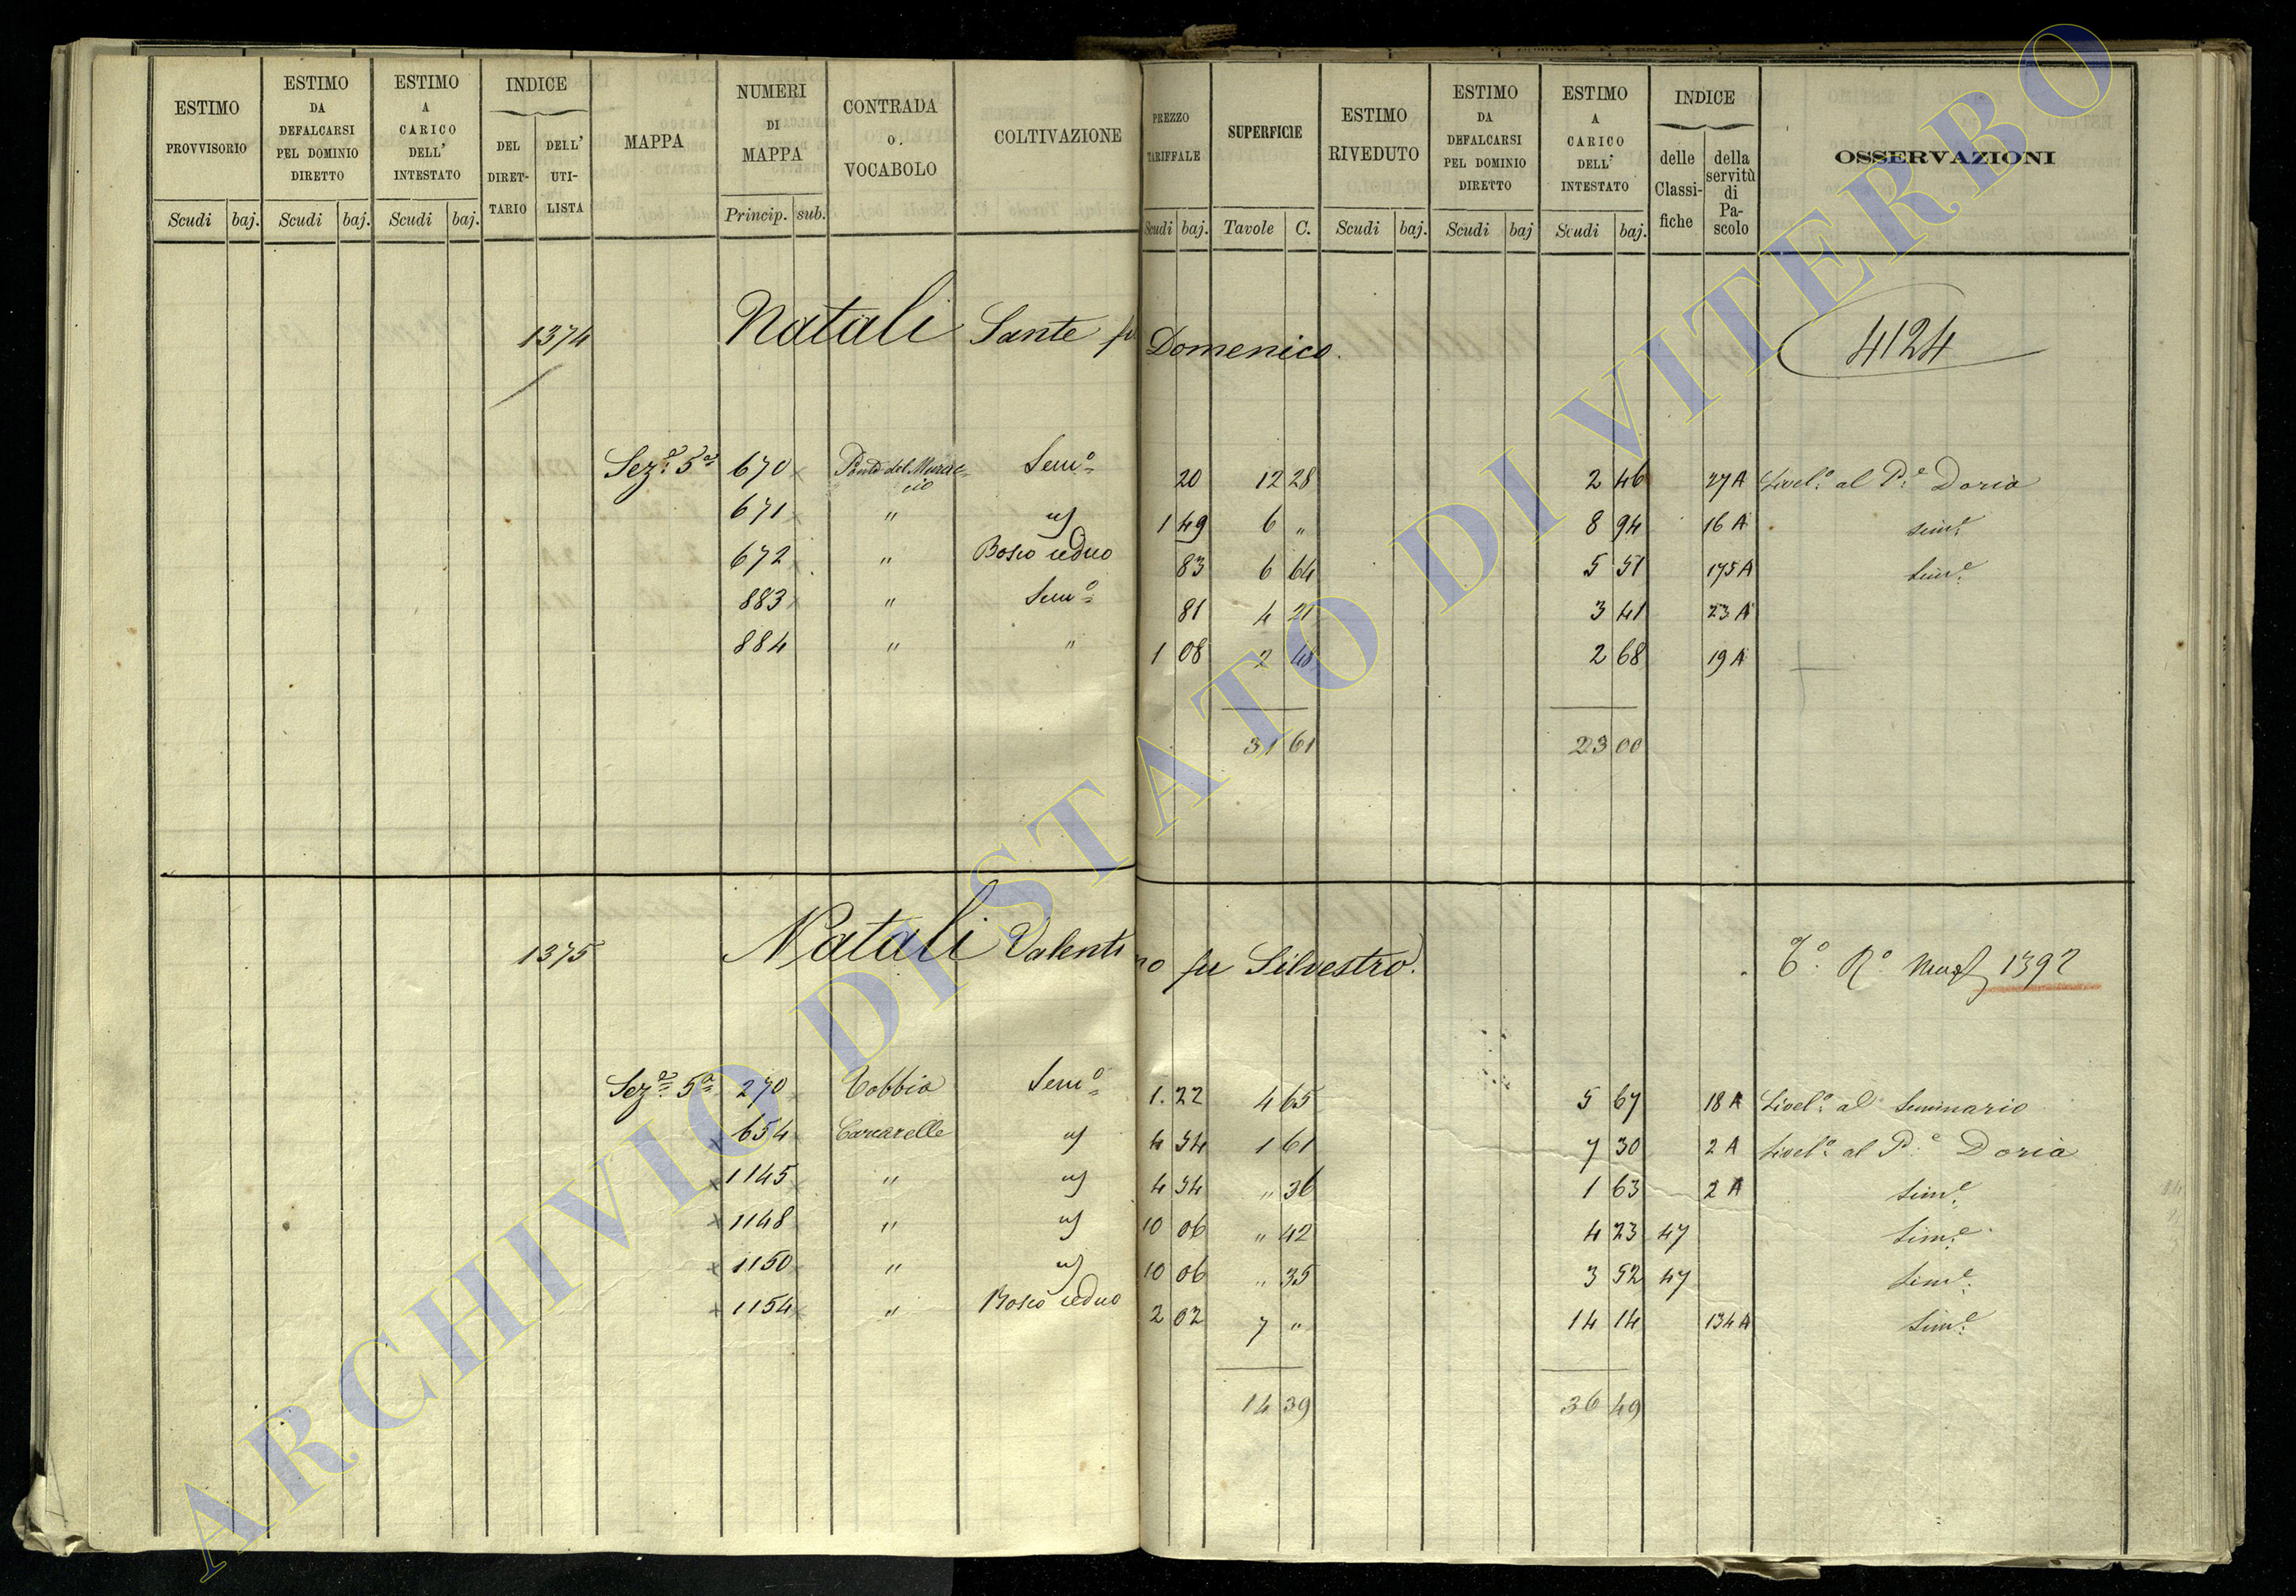 ESTIMO PROVVISORIO Scudi baj.
ESTIMO DA DEFALCARSI PEL DOMINIO DIRETTO Scudi baj.
ESTIMO A CARICO DELL' INTESTATO Scudi baj.
INDICE DEL DIRET-TARIO DELL' UTI-LISTA
MAPPA
NUMERI DI MAPPA Princip. sub.
CONTRADA o. VOCABOLO
COLTIVAZIONE
PREZZO TARIFFALE Scudi baj.
SUPERFICIE Tavole C.
ESTIMO RIVEDUTO Scudi baj.
ESTIMO DA DEFALCARSI PEL DOMINIO DIRETTO Scudi baj
ESTIMO A CARICO DELL' INTESTATO Scudi baj.
INDICE delle Classi-fiche della servitù di Pa-scolo
OSSERVAZIONI
1374 Natali Sante fu Domenico. 4124
Sez.e 5a 670 Ponte del Murac-cio Sem.o 20 12 28 2 46 27A Livel.o al P.e Doria
671 " 1 49 6 " 8 94 16 A sim.e
672 " Bosco ceduo 83 6 64 5 51 175A Sim.e
883 " Sem.o 81 4 21 3 41 23 A
884 " " 1 08 2 48 2 68 19 A
31 61 23 00
1375 Natali Valentino fu Silvestro. 1392
Sez.e 5a 270 Tobbia Sem.o 1. 22 4 65 5 67 18 A Livel.o al Seminario
654 Carcarelle 4 54 1 61 7 30 2 A Livel.o al P.e Doria
1145 " 4 54 " 36 1 63 2 A Sim.e
1148 " 10 06 " 42 4 23 47 Sim.e
1150 " 10 06 " 35 3 52 47 Sim.e
1154 " Bosco ceduo 2 02 7 " 14 14 134A Sim.e
14 39 36 49
ARCHIVIO DI STATO DI VITERBO